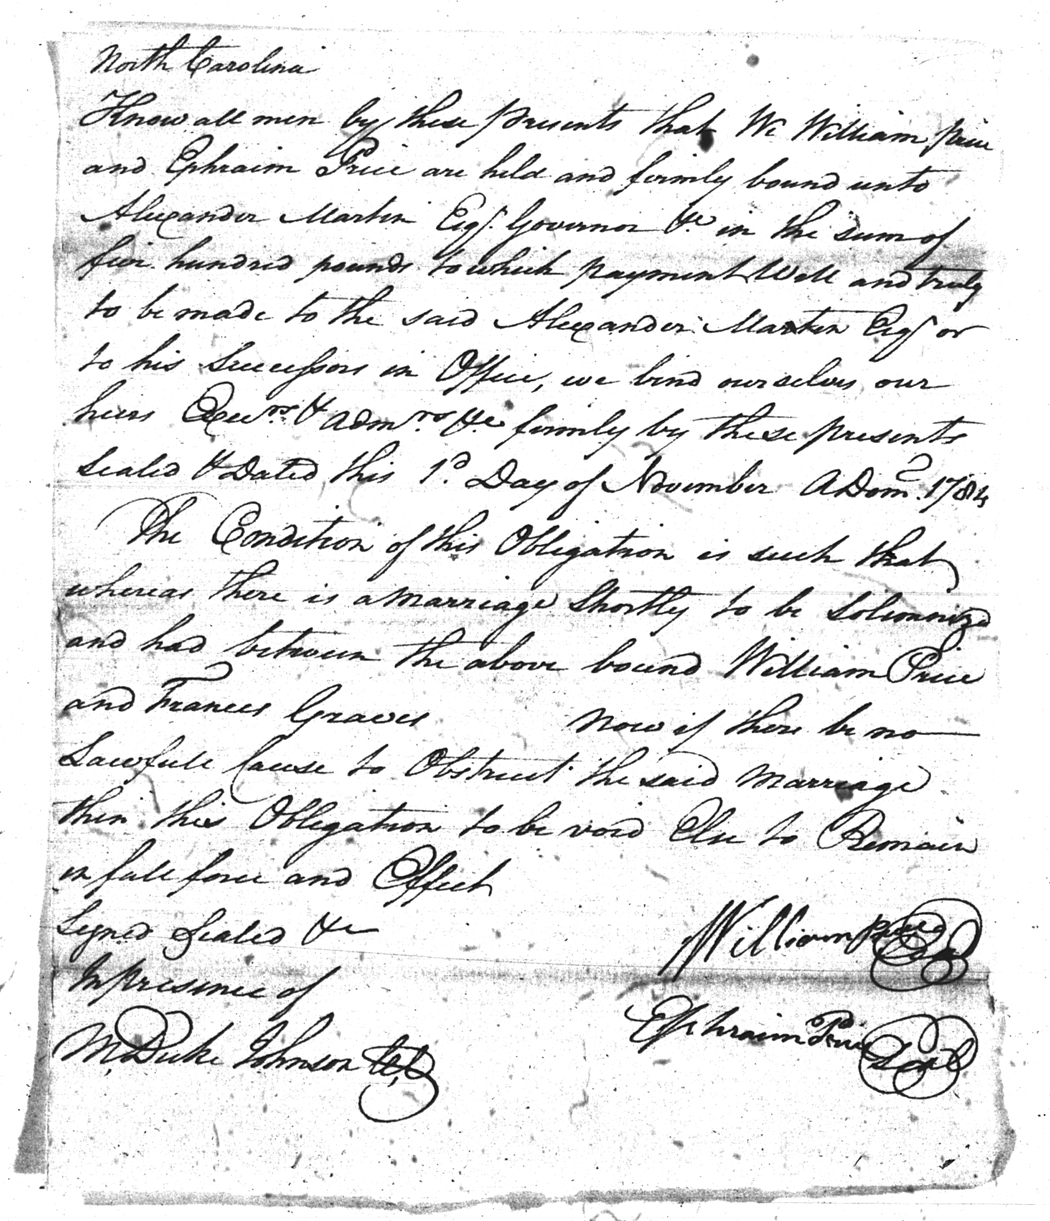 North Carolina
Know all men by these presents that We William Price
and Ephraim Price are held and firmly bound unto
Alexander Martin Esqr. Governor &c in the sum of
five hundred pounds to which payment Well and truly
to be made to the said Alexander Martin Esqr or
to his Successors in Office, we bind ourselves our
heirs Exec.rs & Adm.rs &c firmly by these presents
Sealed & Dated this 1.d Day of November A Dom. 1784
The Condition of this Obligation is such that
whereas there is a Marriage Shortly to be Solemnized
and had between the above bound William Price
and Frances Graves Now if there be no
Lawfull Cause to Obstruct the said Marriage
then this Obligation to be void Else to Remain
in full force and Effect
Sign.d Sealed &c
In presence of
William Price
Ephraim Price Seal
M. Duke Johnson